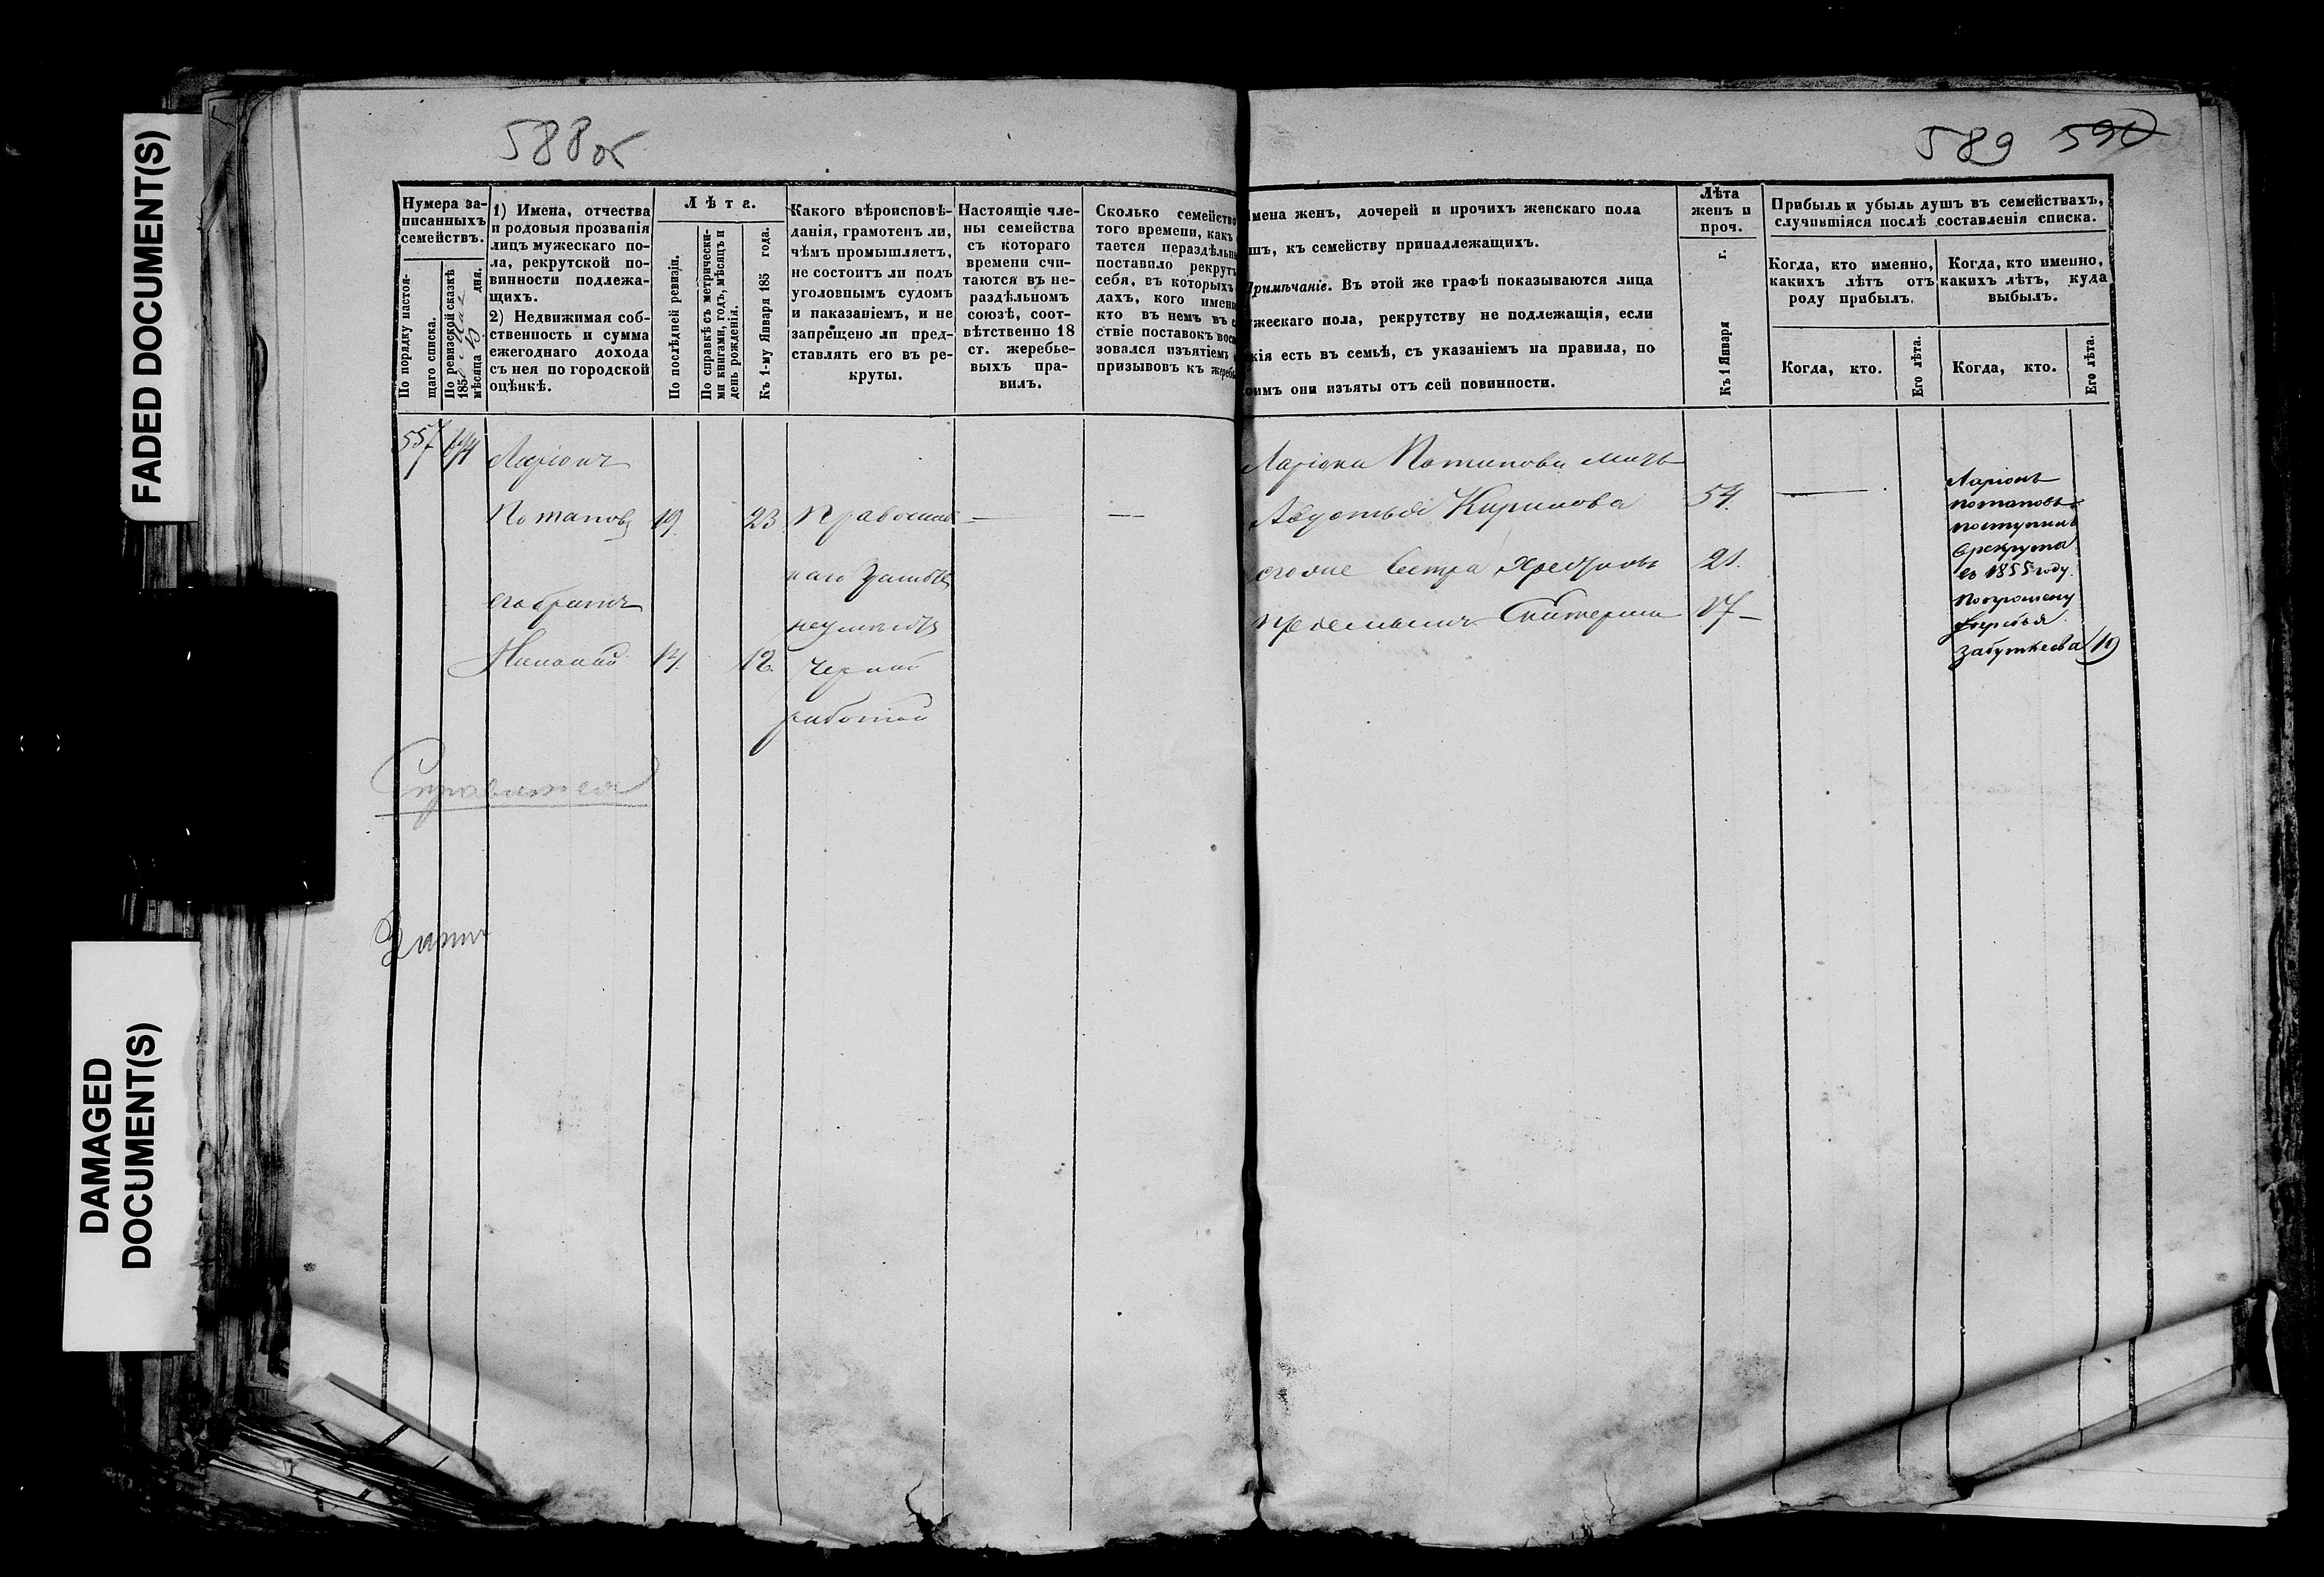 FADED DOCUMENT(S)
DAMAGED
DOCUMENT(S)
588 об
589 590
Нумера за-
писанныхъ
семействъ.
По порядку настоя-
щаго списка.
По ревизской сказкѣ
185 мѣсяца дня.
1) Имена, отчества
и родовыя прозванія
лицъ мужескаго по-
ла, рекрутской по-
винности подлежа-
щихъ.
2) Недвижимая соб-
ственность и сумма
ежегоднаго дохода
съ нея по городской
оцѣнкѣ.
Лѣта.
По послѣдней ревизіи.
По справкѣ съ метрически-
ми книгами, годъ, мѣсяцъ и
день рожденія.
Къ 1-му Января 185 года.
Какого вѣроисповѣ-
данія, грамотенъ ли,
чѣмъ промышляетъ,
не состоитъ ли подъ
уголовнымъ судомъ
и наказаніемъ, и не
запрещено ли пред-
ставлять его въ ре-
круты.
Настоящіе чле-
ны семейства
съ котораго
времени счи-
таются въ не-
раздѣльномъ
союзѣ, соот-
вѣтственно 18
ст. жеребье-
выхъ пра-
вилъ.
Сколько семейство
того времени, какъ
тается нераздѣльн
поставило рекрут
себя, въ которыхъ
дахъ, кого именн
кто въ немъ въ с
ствіе поставокъ вос
зовался изъятіемъ
призывовъ къ жеребь
мена женъ, дочерей и прочихъ женскаго пола
шъ, къ семейству принадлежащихъ.
Примѣчаніе. Въ этой же графѣ показываются лица
ужескаго пола, рекрутству не подлежащія, если
кія есть въ семьѣ, съ указаніемъ на правила, по
оимъ они изъяты отъ сей повинности.
Лѣта
женъ и
проч.
Къ 1 Января г.
Прибыль и убыль душъ въ семействахъ,
случившіяся послѣ составленія списка.
Когда, кто именно,
какихъ лѣтъ отъ
роду прибылъ.
Когда, кто именно,
какихъ лѣтъ, куда
выбылъ.
Когда, кто.
Его лѣта.
Когда, кто.
Его лѣта.
557 694 Ларіонъ
Потаповъ 19 23 Православ
наго
его братъ
14 12 черной
работой
Ларіона Потапова мать
Авдотья Кирилова 54
его же сестра 21
Екатерина 17
Ларіонъ
Потаповъ
поступилъ
в рекрута
въ 1855 году
19